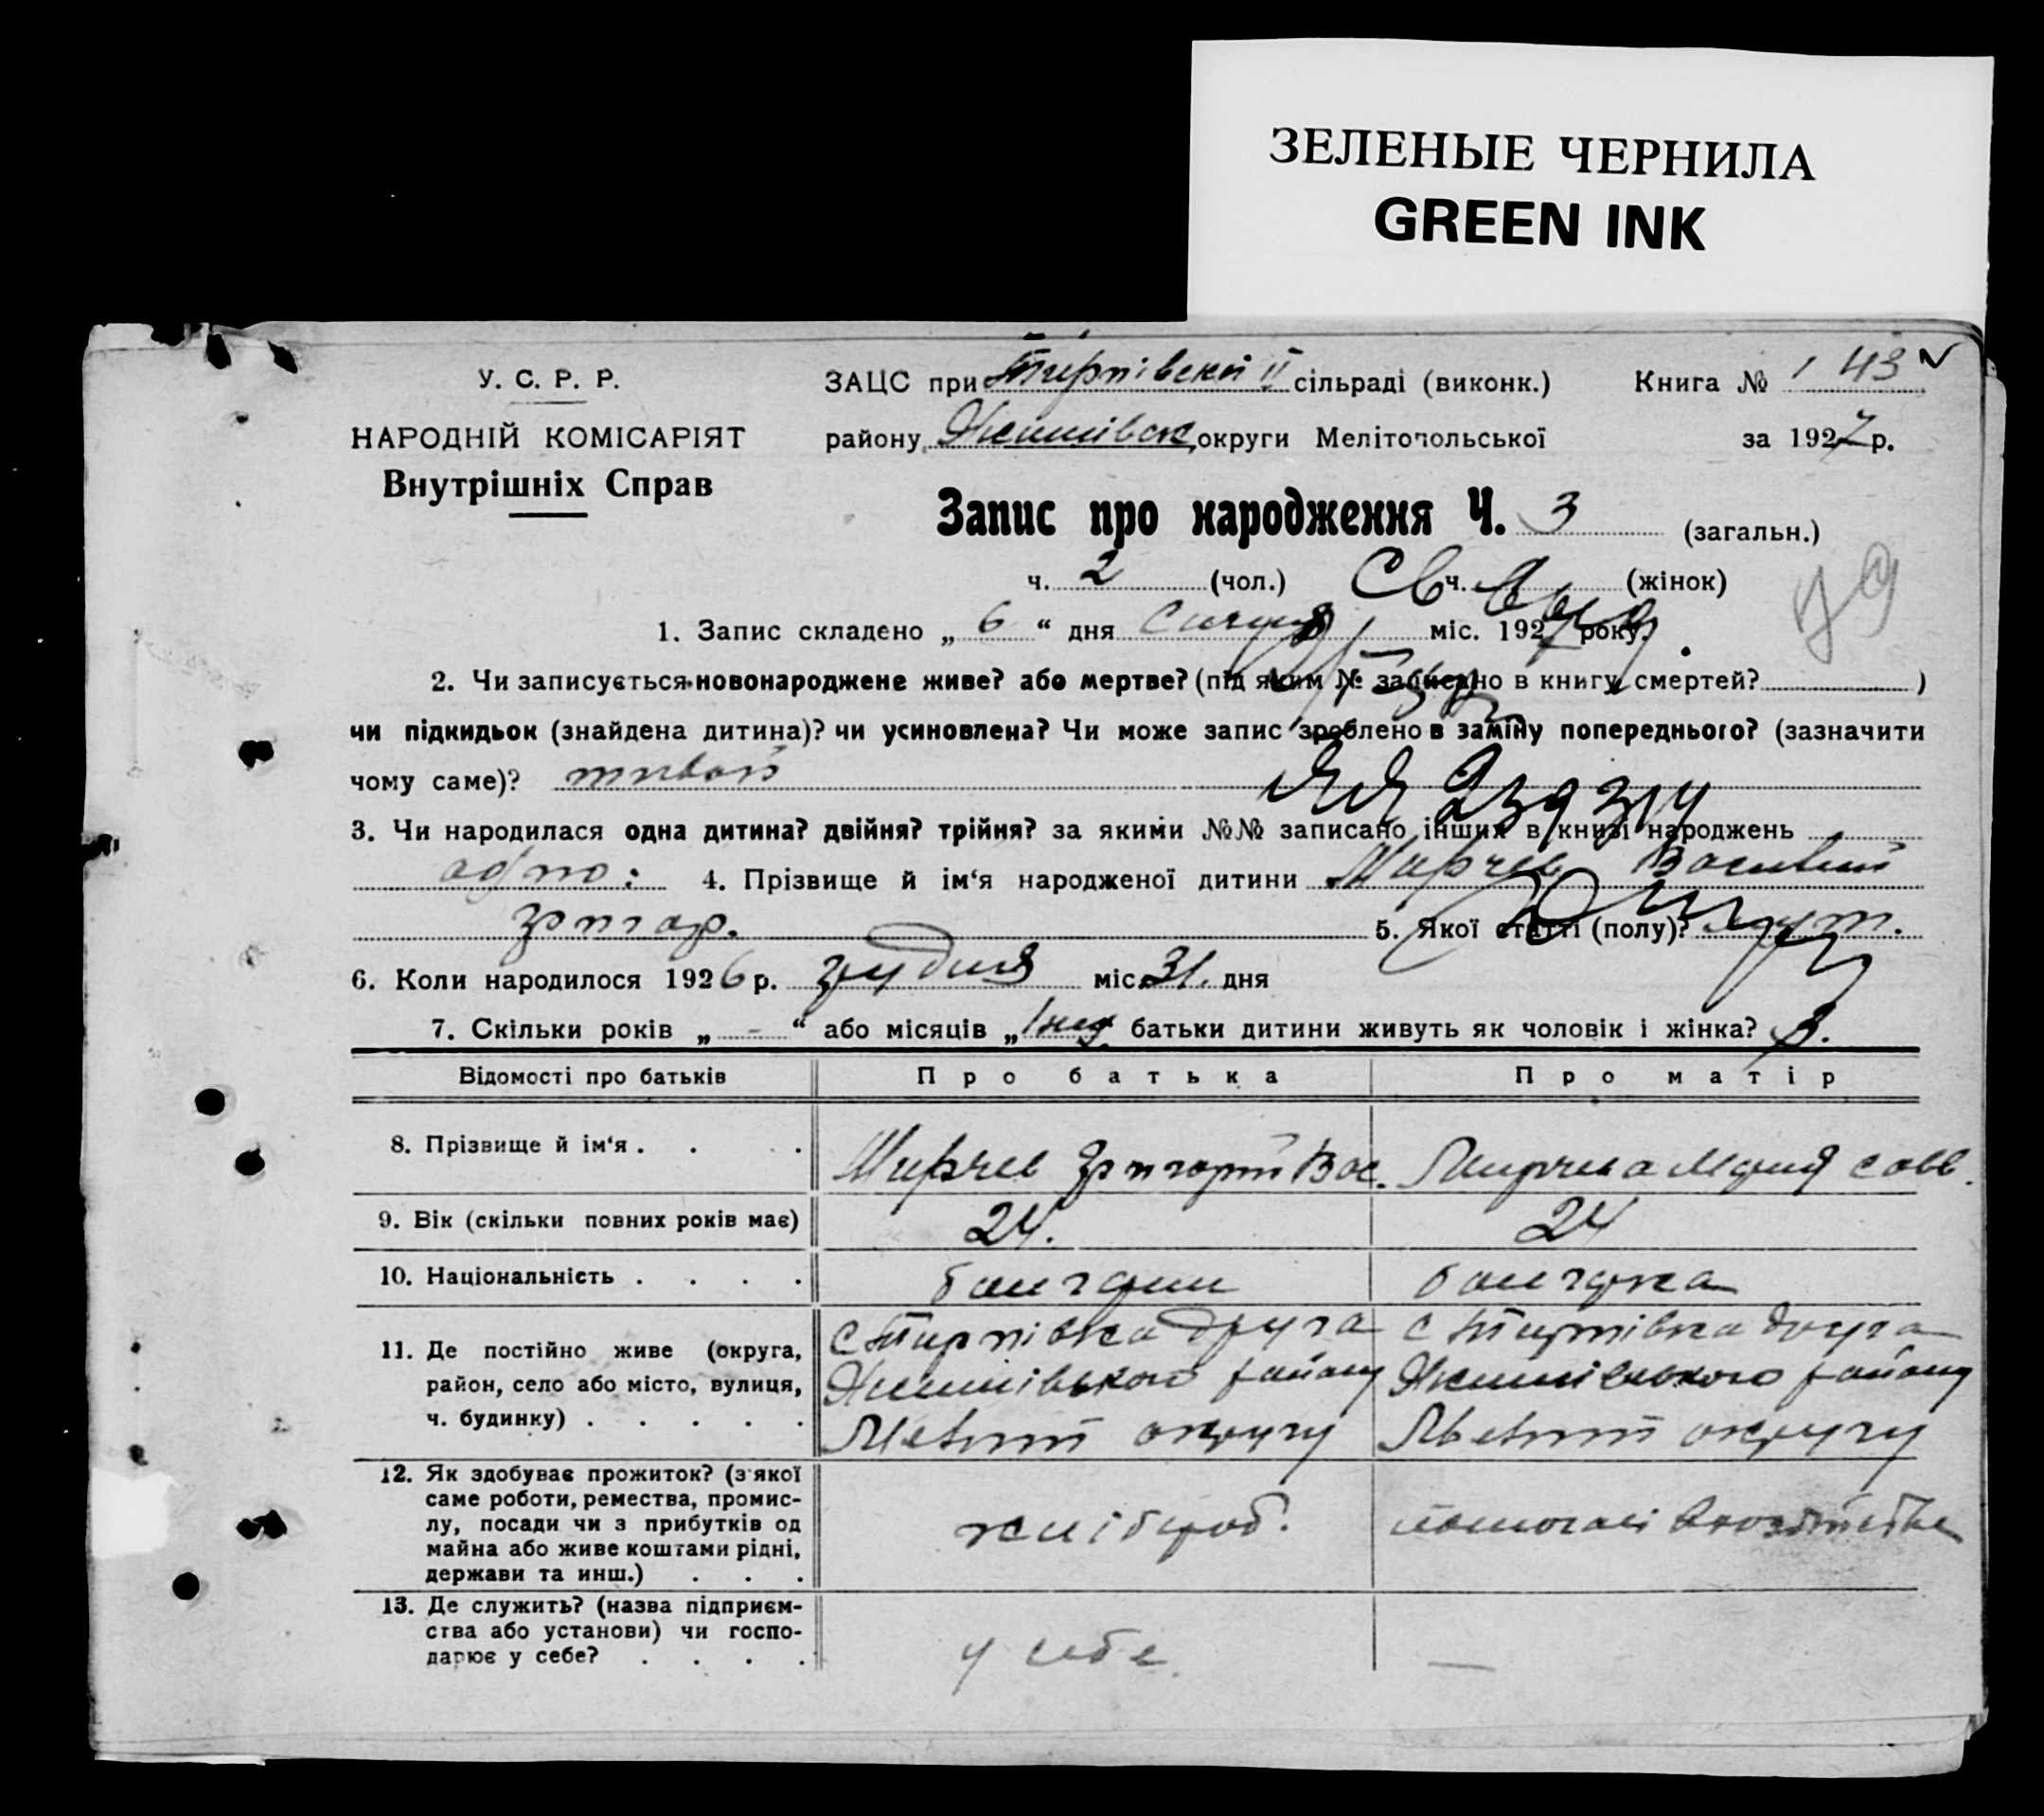 ЗЕЛЕНЫЕ ЧЕРНИЛА
GREEN INK
У. С. Р. Р.
НАРОДНІЙ КОМІСАРІЯТ
Внутрішніх Справ
ЗАЦС при II сільраді (виконк.) Книга № 1 43
району округи Мелітопольської за 1927 р.
Запис про народження Ч. 3 (загальн.)
ч. 2 (чол.) ч. (жінок)
1. Запис складено „ 6 “ дня Січня міс. 1927 року.
2. Чи записується новонароджене живе? або мертве? (під яким № записано в книгу смертей? )
чи підкидьок (знайдена дитина)? чи усиновлена? Чи може запис зроблено в заміну попереднього? (зазначити
чому саме)? живой
3. Чи народилася одна дитина? двійня? трійня? за якими №№ записано інших в книзі народжень
одно: 4. Прізвище й ім‘я народженої дитини Мирчев Василий
Григор. 5. Якої статті (полу)?
6. Коли народилося 1926 р. грудня міс. 31. дня
7. Скільки років „ - “ або місяців „ батьки дитини живуть як чоловік і жінка?
Відомості про батьків Про батька Про матір
8. Прізвище й ім‘я . . . Мирчев Григорий Вас. Мирчева Мария Савв.
9. Вік (скільки повних років має) 24. 24
10. Національність . . . . болгарин болгарка
11. Де постійно живе (округа, район, село або місто, вулиця, ч. будинку) . . . . .
с друга району Меліт округу
с друга району Меліт округу
12. Як здобуває прожиток? (з якої саме роботи, ремества, промислу, посади чи з прибутків од майна або живе коштами рідні, держави та инш.) . . .
хлібороб.
13. Де служить? (назва підприємства або установи) чи господарює у себе? . . . .
у себе. —